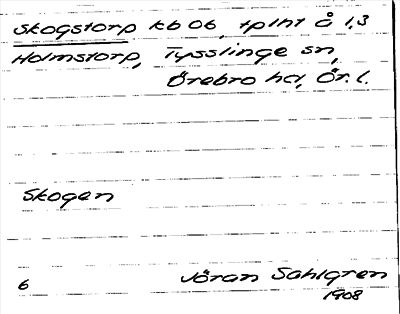 Skogstorp kb 06, tplht å 1,3
Holmstorp, Tysslinge sn,
Örebro hd, Ör. l.
Skogen
6 Jöran Sahlgren
1908